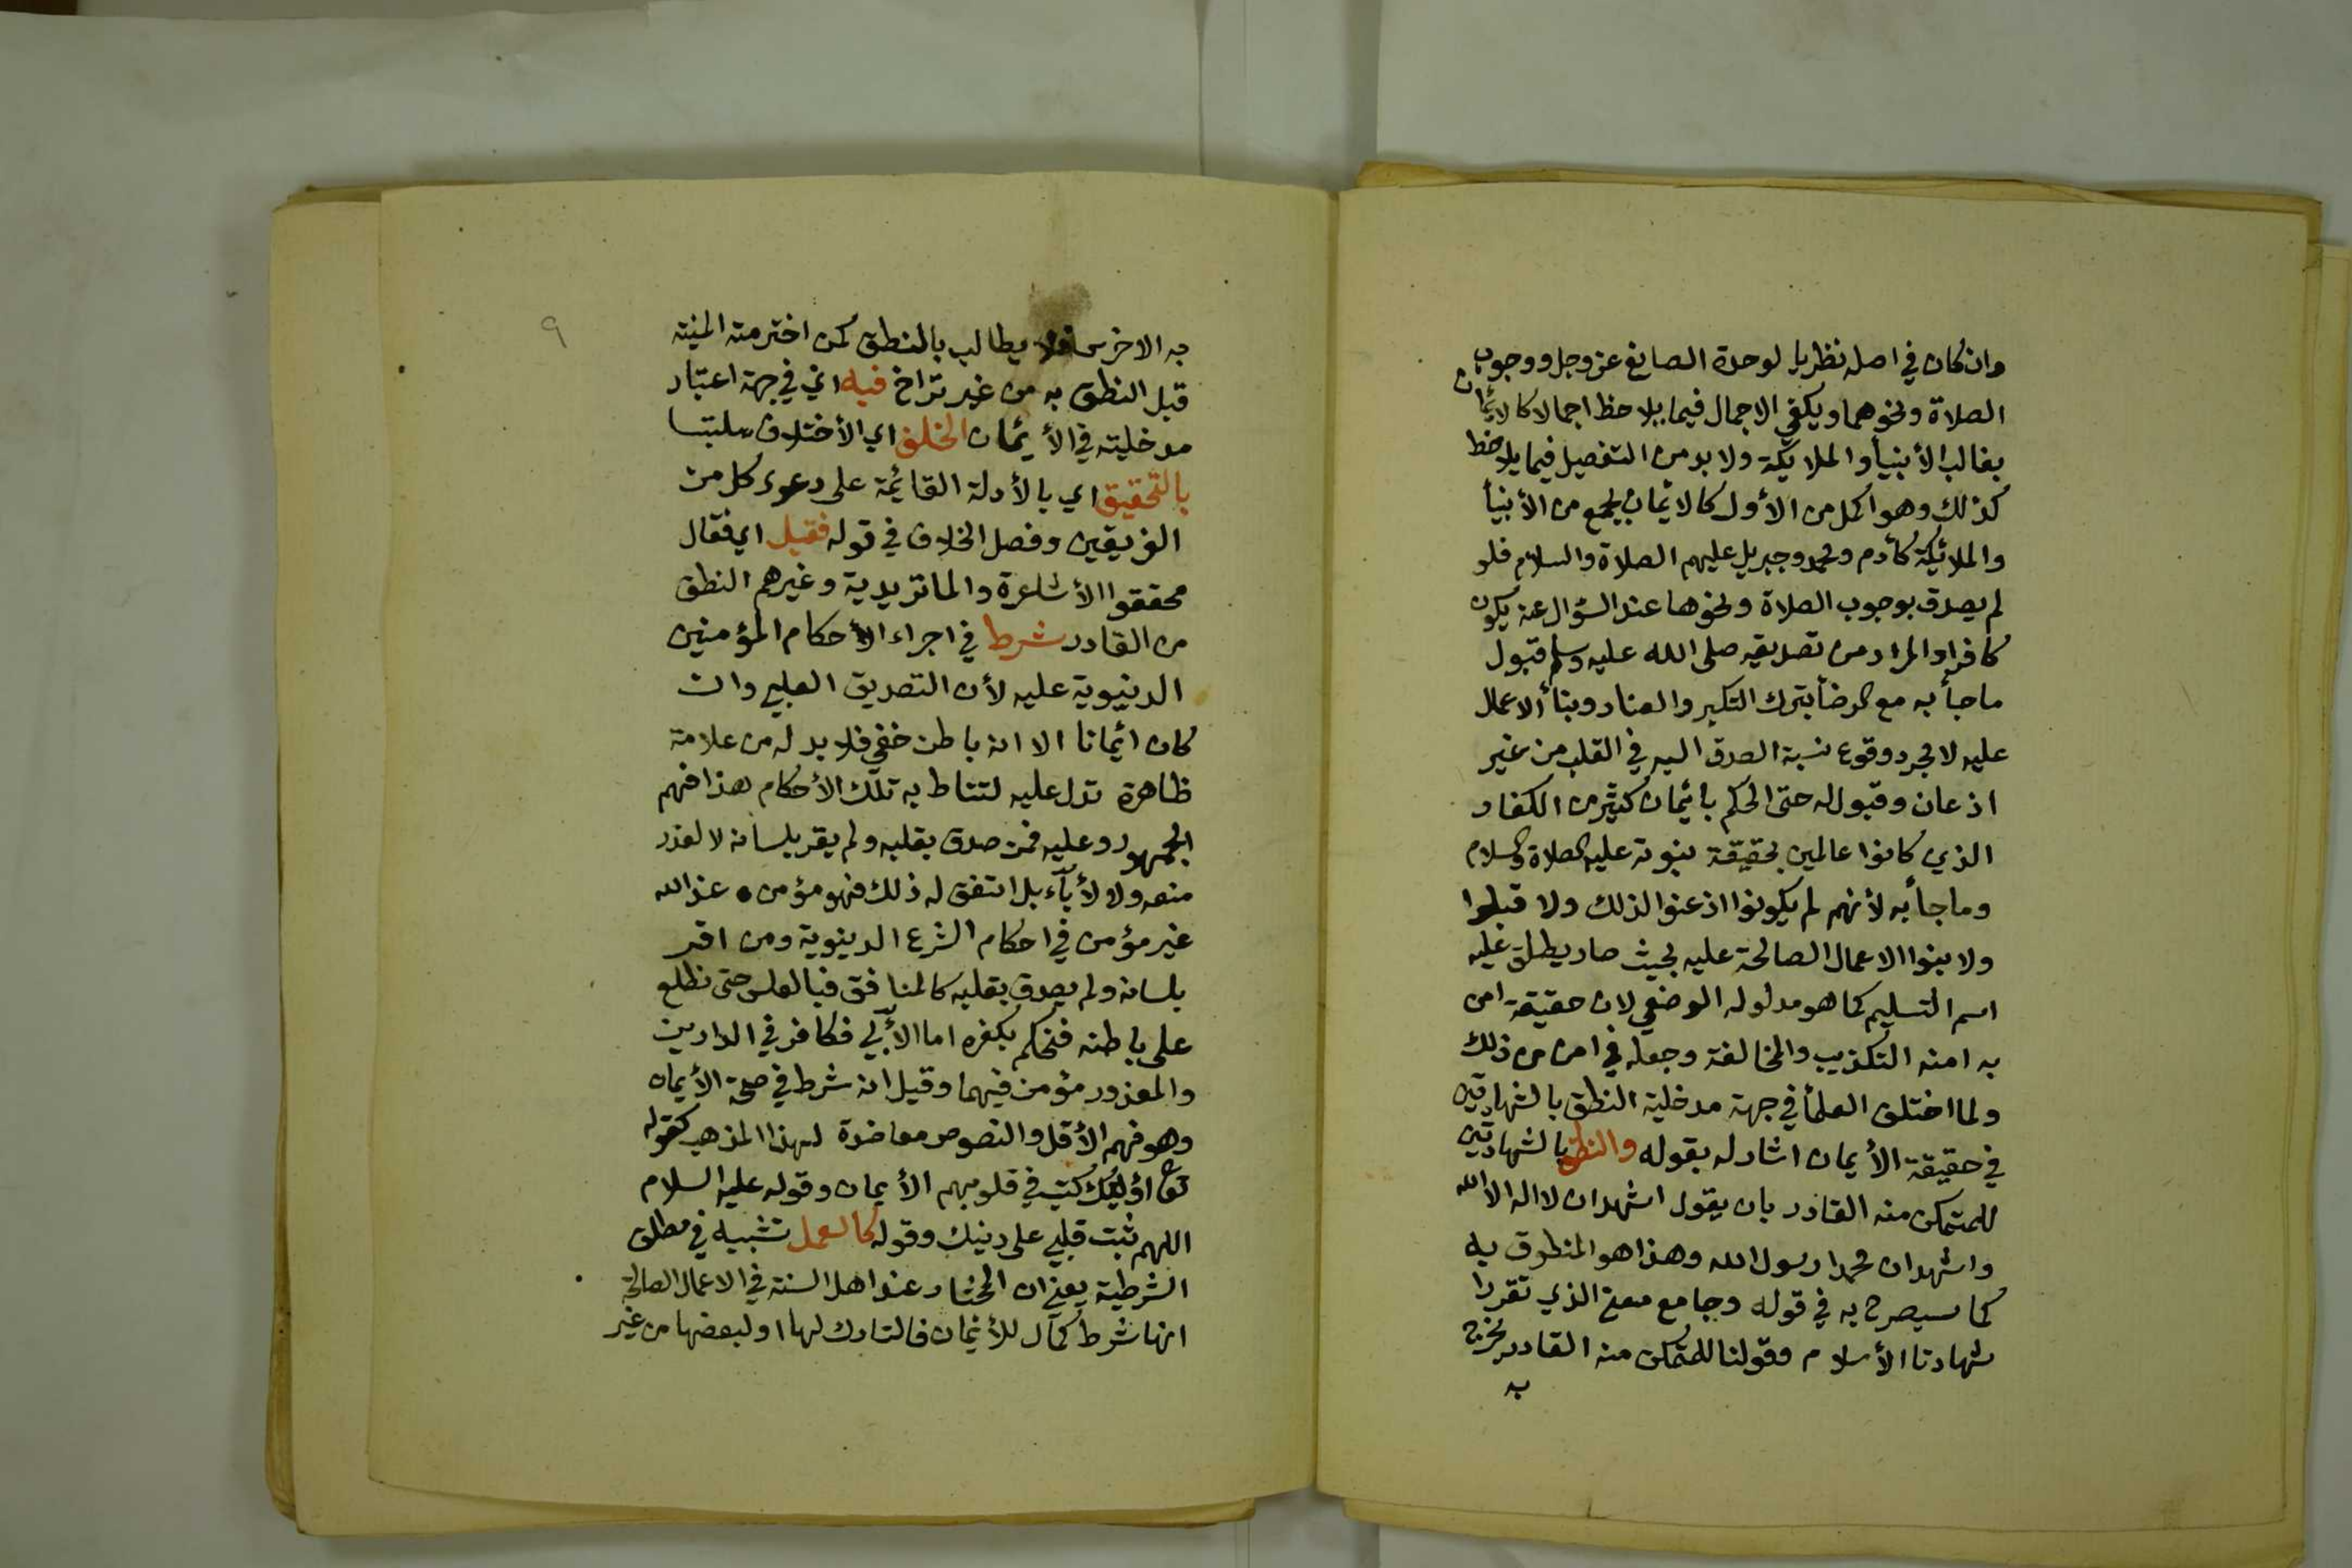 وان كان في اصله نظريا لوحدة الصانع عز وجل ووجوب
الصلاة ونحوهما ويكفي الاجمال فيما يلاحظ اجمالا كالائمان
بغالب الأنبيأ والملايكة ولا بد من التفصيل فيما يلاحظ
كذلك وهو اكمل من الأول كالائمان بجمع من الأنبيأ
والملائيكة كأدم ومحمد وجبريل عليهم الصلاة والسلام فلو
لم يصدق بوجوب الصلاة ونحوها عند السؤال عنه يكون
كافرا والمراد من تصديقه صلى الله عليه وسلم قبول
ما جأ به مع الرضأ بترك التكبر والعناد وبنأ الاعمال
عليه لا مجرد وقوع نسبة الصدق اليه في القلب من غير
اذعان وقبول له حتى الحكم بائمان كثير من الكفار
الذي كانوا عالمين بحقيقة نبوته عليه الصلاة والسلام
وما جأ به لأنهم لم يكونوا اذعنوا لذلك ولا قبلوا
ولا بنوا الاعمال الصالحة عليه بحيث صار يطلق عليه
اسم التسليم كما هو مدلوله الوضعي لان حقيقة امن
به امنه التكذيب والمخالفة وجعله في امن من ذلك
ولما اختلف العلمأ في جهة مدخلية النطق بالشهادتين
في حقيقة الأيمان اشار له بقوله والنطق بالشهادتين
للمتمكن منه القادر بان يقول اشهد ان لا اله الا الله
واشهد ان محمدا رسول الله وهذا هو المنطوق به
كما سيصرح به في قوله وجامع معنى الذي تقررا
شهادتا الأسلام وقولنا للمتمكن منه القادر يخرج
به
٩
به الاخرس فلا يطالب بالنطق كمن اخترمته المنية
قبل النطق به من غير تراخ فيه اي في جهة اعتبار
مدخليته في الأيمان الخلف اي الأختلاف ملتبسا
بالتحقيق اي بالأدلة القائمة على دعوى كل من
الفريقين وفصل الخلاف في قوله فقيل اي فقال
محققوا الأشاعرة والماتريدية وغيرهم النطق
من القادر شرط في اجراء الأحكام المؤمنين
الدنيوية عليه لأن التصديق القلبي وان
كان ائمانا الا انه باطن خفي فلا بد له من علامة
ظاهرة تدل عليه لتناط به تلك الأحكام هذا فهم
الجمهور وعليه فمن صدق بقلبه ولم يقر بلسانه لا لعذر
منعه ولا لأبآء بل اتفق له ذلك فهو مؤمن عند الله
غير مؤمن في احكام الشرع الدينوية ومن اقر
بلسانه ولم يصدق بقلبه كالمنافق فبالعكس حتى نطلع
على باطنه فنحكم بكفره اما الأبي فكافر في الدارين
والمعذور مؤمن فيهما وقيل انه شرط في صحة الأيمان
وهو فهم الأقل والنصوص معاضدة لهذا المذهب كقوله
تعا اوليك كتب في قلوبهم الأيمان وقوله عليه السلام
اللهم ثبت قلبي على دينك وقوله كالعمل تشبيه في مطلق
الشرطية يعني ان المختار عند اهل السنة في الاعمال الصالحة
انها شرط كمآل للأئمان فالتارك لها او لبعضها من غير